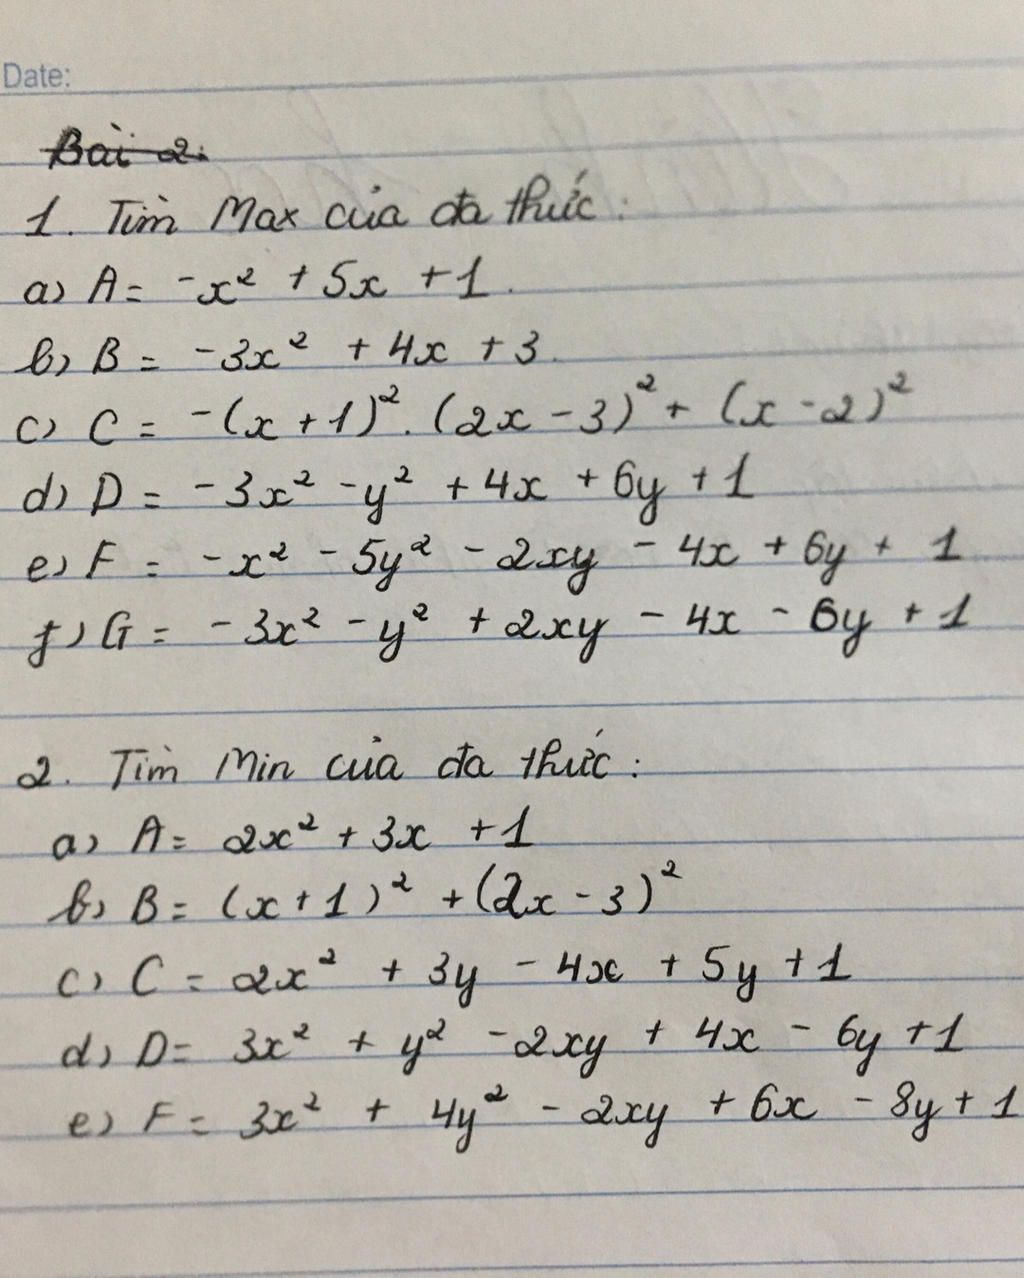 Date:
Bài 2.
1. Tìm Max của đa thức:
a) A = -x² + 5x + 1.
b) B = -3x² + 4x + 3.
c) C = -(x + 1)². (2x - 3)² + (x - 2)²
d) D = -3x² - y² + 4x + 6y + 1
e) F = -x² - 5y² - 2xy - 4x + 6y + 1
f) G = -3x² - y² + 2xy - 4x - 6y + 1
2. Tìm Min của đa thức:
a) A = 2x² + 3x + 1
b) B = (x + 1)² + (2x - 3)²
c) C = 2x² + 3y - 4x + 5y + 1
d) D = 3x² + y² - 2xy + 4x - 6y + 1
e) F = 3x² + 4y² - 2xy + 6x - 8y + 1